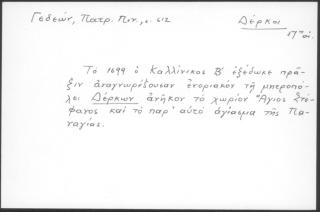 Γεδεών, Πατρ. Πιν., σ. 612
Δέρκοι
17ος αἰ.
Τὸ 1699 ὁ Καλλίνικος Β' ἐξέδωκε πρᾶ-
ξιν ἀναγνωρίζουσαν ἐνοριακὸν τῇ μητροπό-
λει Δέρκων ἀνῆκον τὸ χωρίον "Ἅγιος Στέ-
φανος καὶ τὸ παρ' αὐτὸ ἁγίασμα τῆς Πα-
ναγίας.